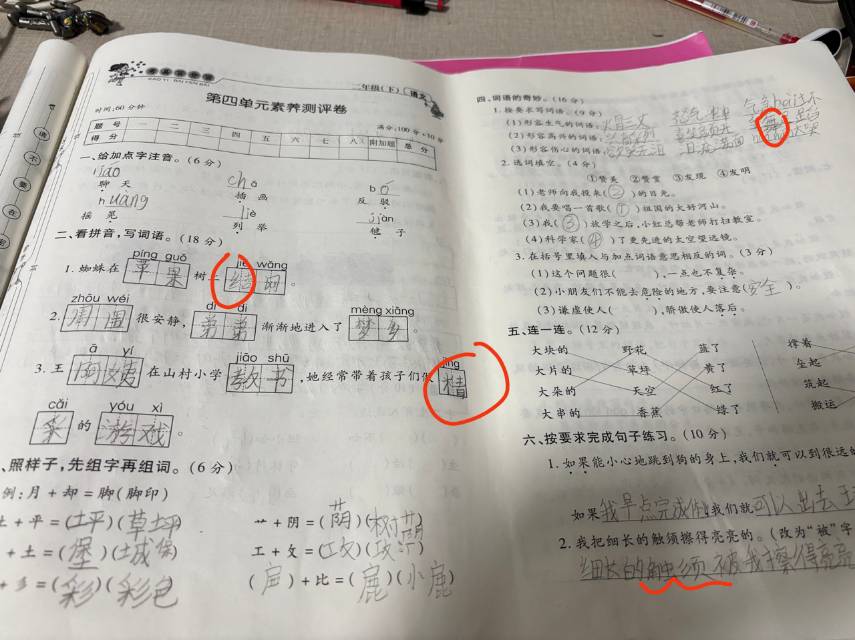 二年级(下) 语文
第四单元素养测评卷
时间:60分钟
满分:100分+10分
题号 一 二 三 四 五 六 七 八 附加题 总分
得分
一、给加点字注音。(6分)
liáo chā bó
聊天 插画 反驳
huàng liè jiàn
摇晃 列举 毽子
二、看拼音,写词语。(18分)
píng guǒ jié wǎng
1.蜘蛛在 苹果 树上 结网 。
zhōu wéi dì di mèng xiāng
2. 周围 很安静, 弟弟 渐渐地进入了 梦乡 。
ā yí jiāo shū jīng
3.王 阿姨 在山村小学 教书 ,她经常带着孩子们做 精
cǎi yóu xì
彩 的 游戏 。
、照样子,先组字再组词。(6分)
例:月+却=脚(脚印)
土+平=(坪)(草坪) 艹+阴=(荫)(树荫)
+土=(堡)(城堡) 工+攵=(攻)
+彡=(彩)(彩色) +比=(鹿)(小鹿)
四、词语的奇妙。(16分)
1.按要求写词语。(9分)
(1)形容生气的词语:
(2)形容高兴的词语:
(3)形容伤心的词语:
2.选词填空。(4分)
①赞美 ②赞赏 ③发现 ④发明
(1)老师向我投来(②)的目光。
(2)我要唱一首歌(①)祖国的大好河山。
(3)我(③)放学之后,小红总帮老师打扫教室。
(4)科学家(④)了更先进的太空望远镜。
3.在括号里填入与加点词语意思相反的词。(3分)
(1)这个问题很( ),一点也不复杂。
(2)小朋友们不能去危险的地方,要注意(安全)。
(3)谦虚使人( ),骄傲使人落后。
五、连一连。(12分)
大块的 野花 蓝了 撑着
大片的 草坪 黄了 垒起
大朵的 天空 红了 筑起
大串的 香蕉 绿了 搬运
六、按要求完成句子练习。(10分)
1.如果能小心地跳到狗的身上,我们就可以到很远的
如果我早点完成作业我们就可以出去玩
2.我把细长的触须擦得亮亮的。(改为“被”字
细长的触须被我擦得亮亮